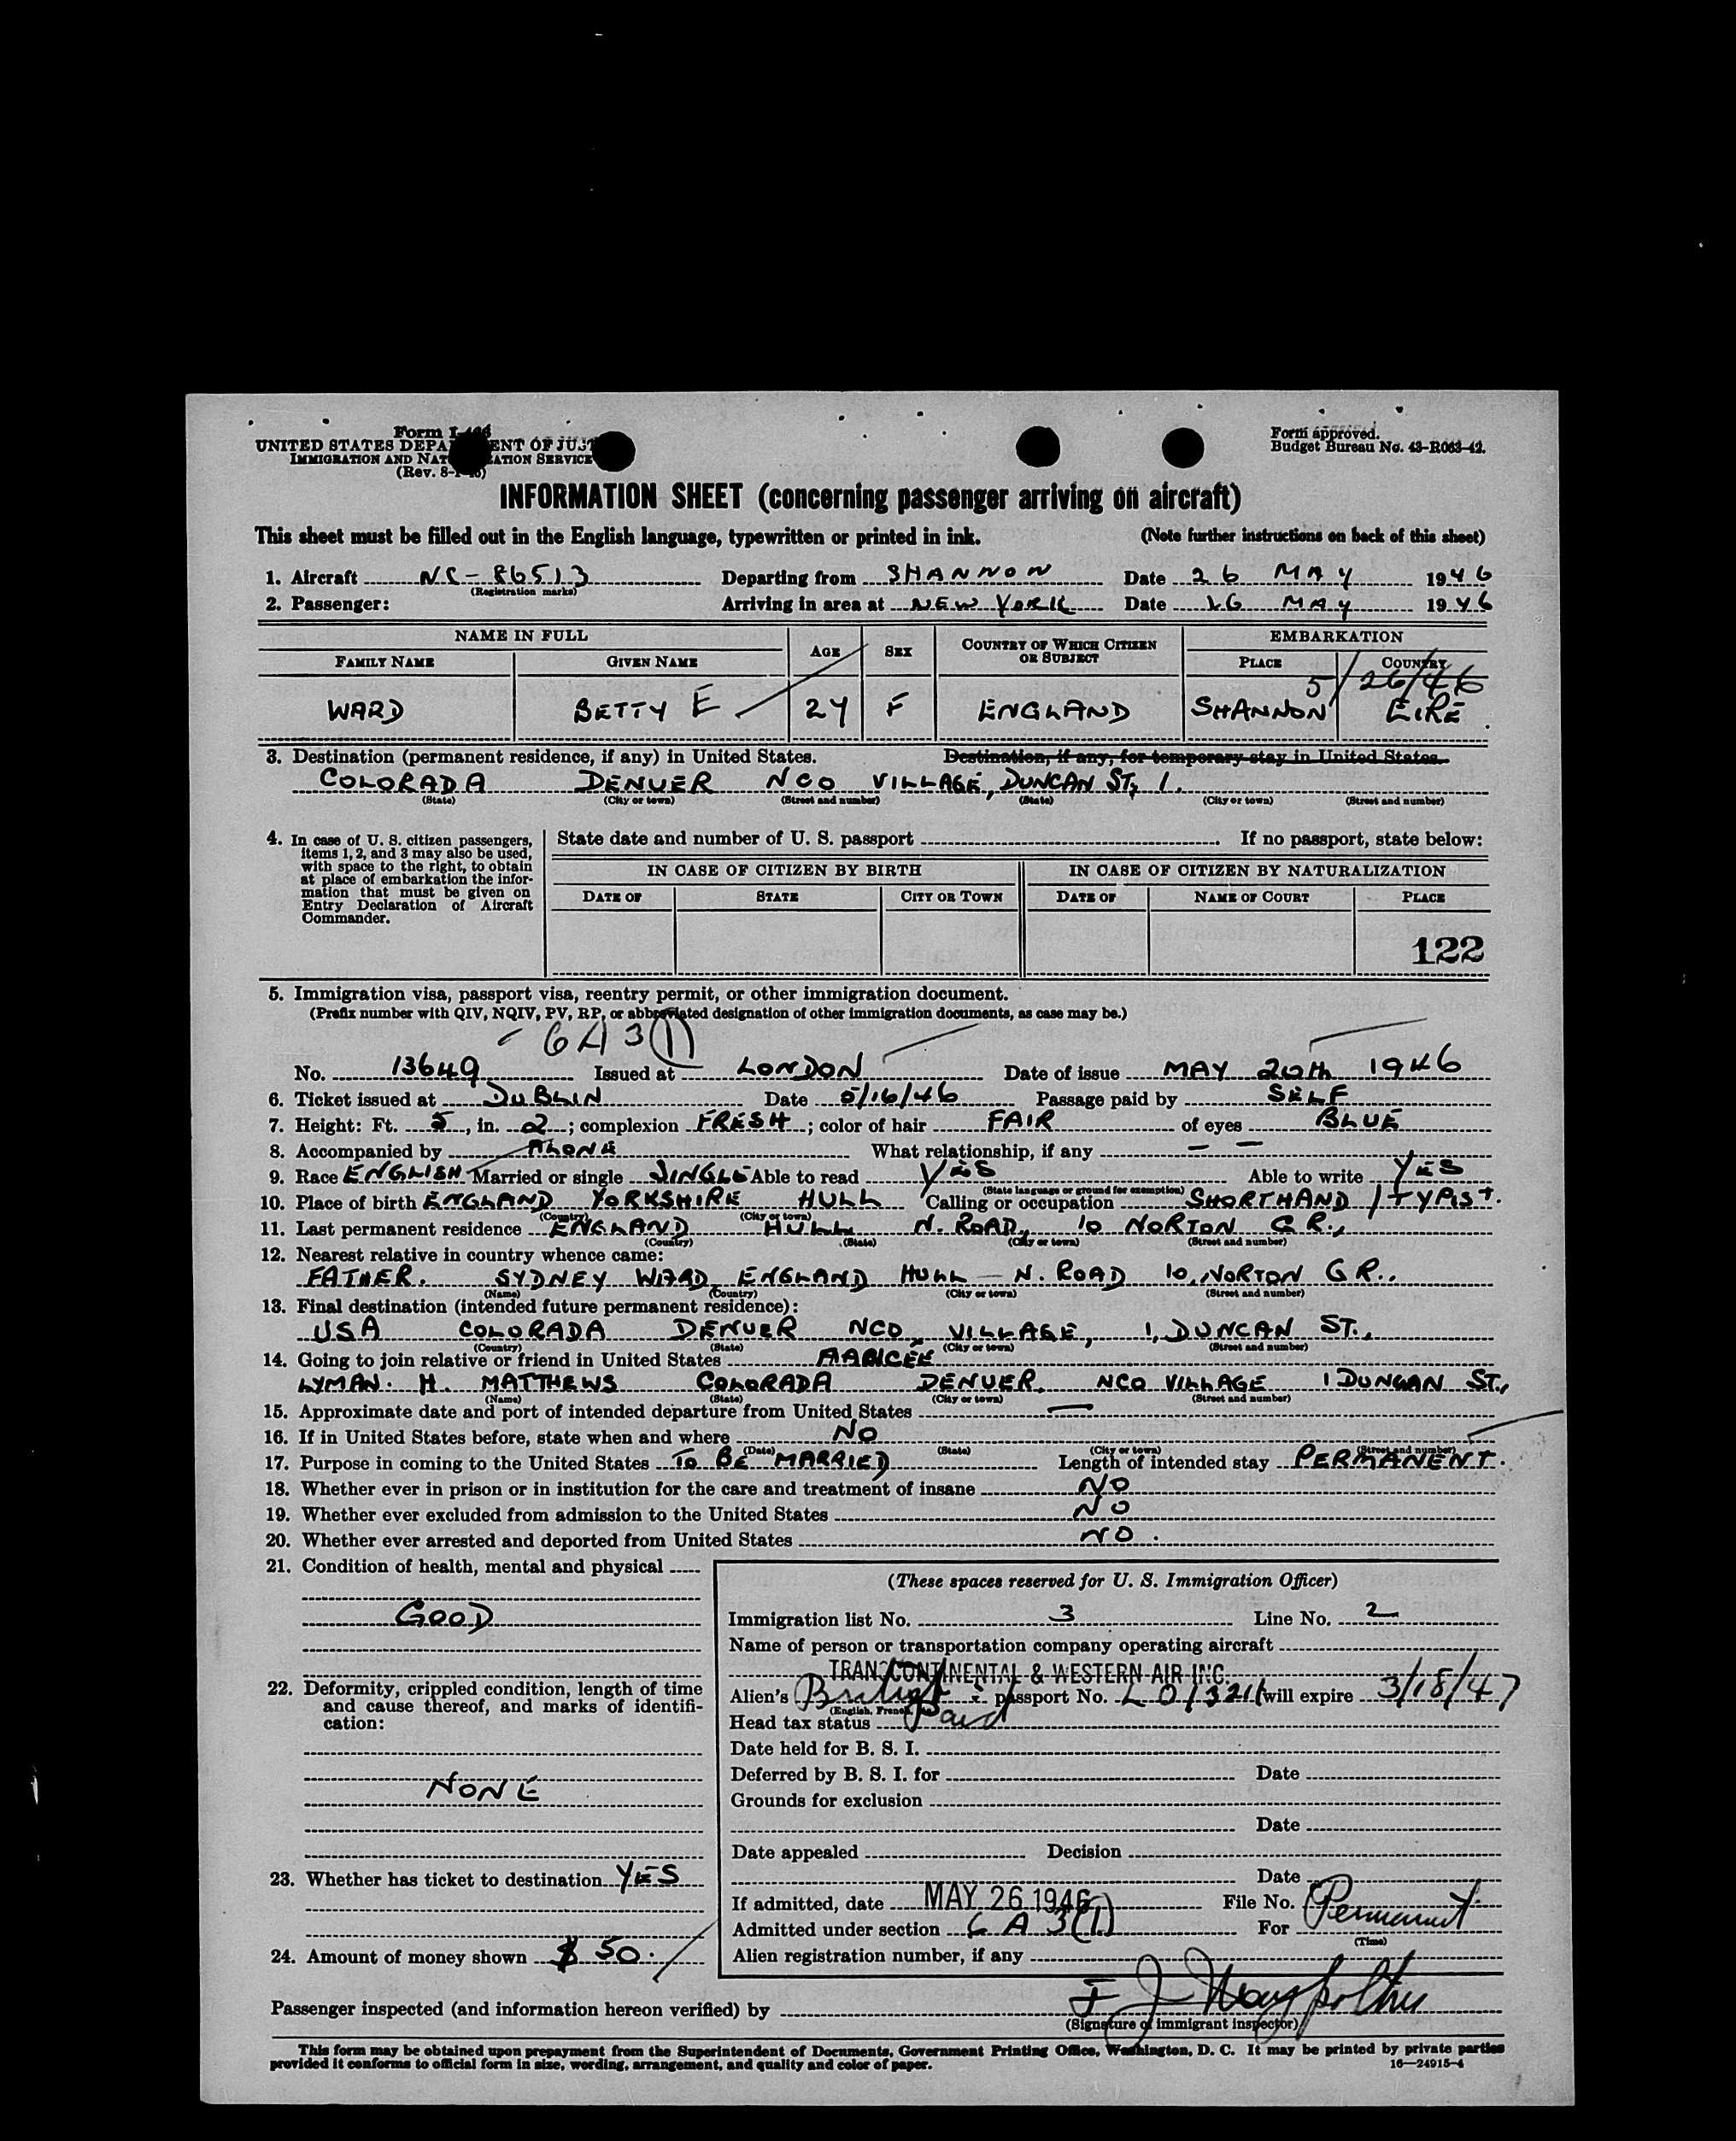 Form I-466
UNITED STATES DEPARTMENT OF JUSTICE
IMMIGRATION AND NATURALIZATION SERVICE
(Rev. 8-1-45)
Form approved.
Budget Bureau No. 43-R063-42.
INFORMATION SHEET (concerning passenger arriving on aircraft)
This sheet must be filled out in the English language, typewritten or printed in ink. (Note further instructions on back of this sheet)
1. Aircraft NC-86513 Departing from SHANNON Date 26 MAY 1946
(Registration marks)
2. Passenger: Arriving in area at NEW YORK Date 26 MAY 1946
NAME IN FULL AGE SEX COUNTRY OF WHICH CITIZEN OR SUBJECT EMBARKATION
FAMILY NAME GIVEN NAME PLACE COUNTRY
5/26/46
WARD BETTY E 24 F ENGLAND SHANNON EIRE
3. Destination (permanent residence, if any) in United States. Destination, if any, for temporary stay in United States.
COLORADA DENVER NCO VILLAGE, DUNCAN ST, 1.
(State) (City or town) (Street and number) (State) (City or town) (Street and number)
4. In case of U. S. citizen passengers, items 1, 2, and 3 may also be used, with space to the right, to obtain at place of embarkation the information that must be given on Entry Declaration of Aircraft Commander.
State date and number of U. S. passport If no passport, state below:
IN CASE OF CITIZEN BY BIRTH IN CASE OF CITIZEN BY NATURALIZATION
DATE OF STATE CITY OR TOWN DATE OF NAME OF COURT PLACE
122
5. Immigration visa, passport visa, reentry permit, or other immigration document.
(Prefix number with QIV, NQIV, PV, RP, or abbreviated designation of other immigration documents, as case may be.)
6 A 3(1)
No. 13649 Issued at LONDON Date of issue MAY 20th 1946
6. Ticket issued at DUBLIN Date 5/16/46 Passage paid by SELF
7. Height: Ft. 5, in. 2; complexion FRESH; color of hair FAIR of eyes BLUE
8. Accompanied by ALONE What relationship, if any — —
9. Race ENGLISH Married or single SINGLE Able to read YES Able to write YES
(State language or ground for exemption)
10. Place of birth ENGLAND YORKSHIRE HULL Calling or occupation SHORTHAND / TYPIST.
(Country) (City or town)
11. Last permanent residence ENGLAND HULL N. ROAD, 10 NORTON GR.,
(Country) (State) (City or town) (Street and number)
12. Nearest relative in country whence came:
FATHER. SYDNEY WARD, ENGLAND HULL – N. ROAD 10, NORTON GR.,
(Name) (Country) (City or town) (Street and number)
13. Final destination (intended future permanent residence):
USA COLORADA DENVER NCO, VILLAGE, 1, DUNCAN ST.,
(Country) (State) (City or town) (Street and number)
14. Going to join relative or friend in United States
LYMAN. H. MATTHEWS COLORADA DENVER, NCO VILLAGE 1 DUNCAN ST.,
(Name) (State) (City or town) (Street and number)
15. Approximate date and port of intended departure from United States —
16. If in United States before, state when and where NO
(Date) (State) (City or town) (Street and number)
17. Purpose in coming to the United States TO BE MARRIED Length of intended stay PERMANENT.
18. Whether ever in prison or in institution for the care and treatment of insane NO
19. Whether ever excluded from admission to the United States NO
20. Whether ever arrested and deported from United States NO.
21. Condition of health, mental and physical
GOOD
22. Deformity, crippled condition, length of time and cause thereof, and marks of identification:
NONE
23. Whether has ticket to destination YES
24. Amount of money shown $ 50.
(These spaces reserved for U. S. Immigration Officer)
Immigration list No. 3 Line No. 2
Name of person or transportation company operating aircraft
TRANSCONTINENTAL & WESTERN AIR INC.
Alien's British passport No. will expire 3/18/47
Head tax status Paid
Date held for B. S. I.
Deferred by B. S. I. for Date
Grounds for exclusion
Date
Date appealed Decision
Date
If admitted, date MAY 26 1946 File No.
Admitted under section 6 A 3(1) For Permanent
(Time)
Alien registration number, if any
Passenger inspected (and information hereon verified) by F J
(Signature of immigrant inspector)
This form may be obtained upon prepayment from the Superintendent of Documents, Government Printing Office, Washington, D. C. It may be printed by private parties
provided it conforms to official form in size, wording, arrangement, and quality and color of paper. 16—24915-4